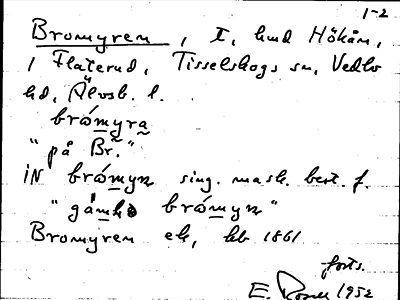 1-2
Bromyren, I, hmd Hökån,
i Flaterud, Tisselskogs sn, Vedbo
hd, Älvsb. l.
brómyra
"på Br."
IN brómyn sing. mask. best. f.
"gámḷə brómyn"
Bromyren ek, kb 1861
forts.
E. Rosell 1952